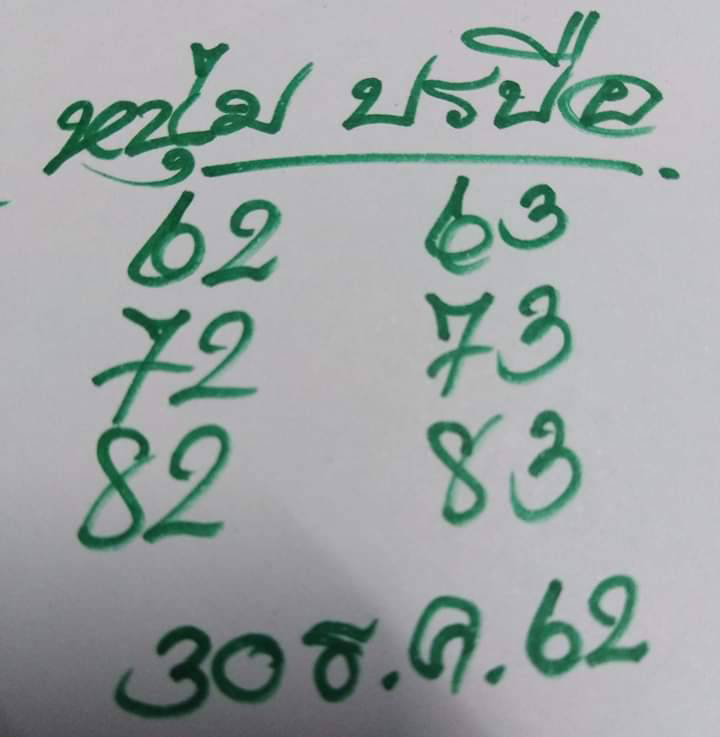 หนุ่ม ปรบือ
62 63
72 73
82 83
30 ธ.ค. 62